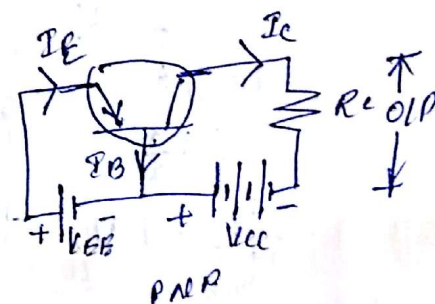 IE Ic
Rc O/P
IB
+ VEE - + VCC -
PNP